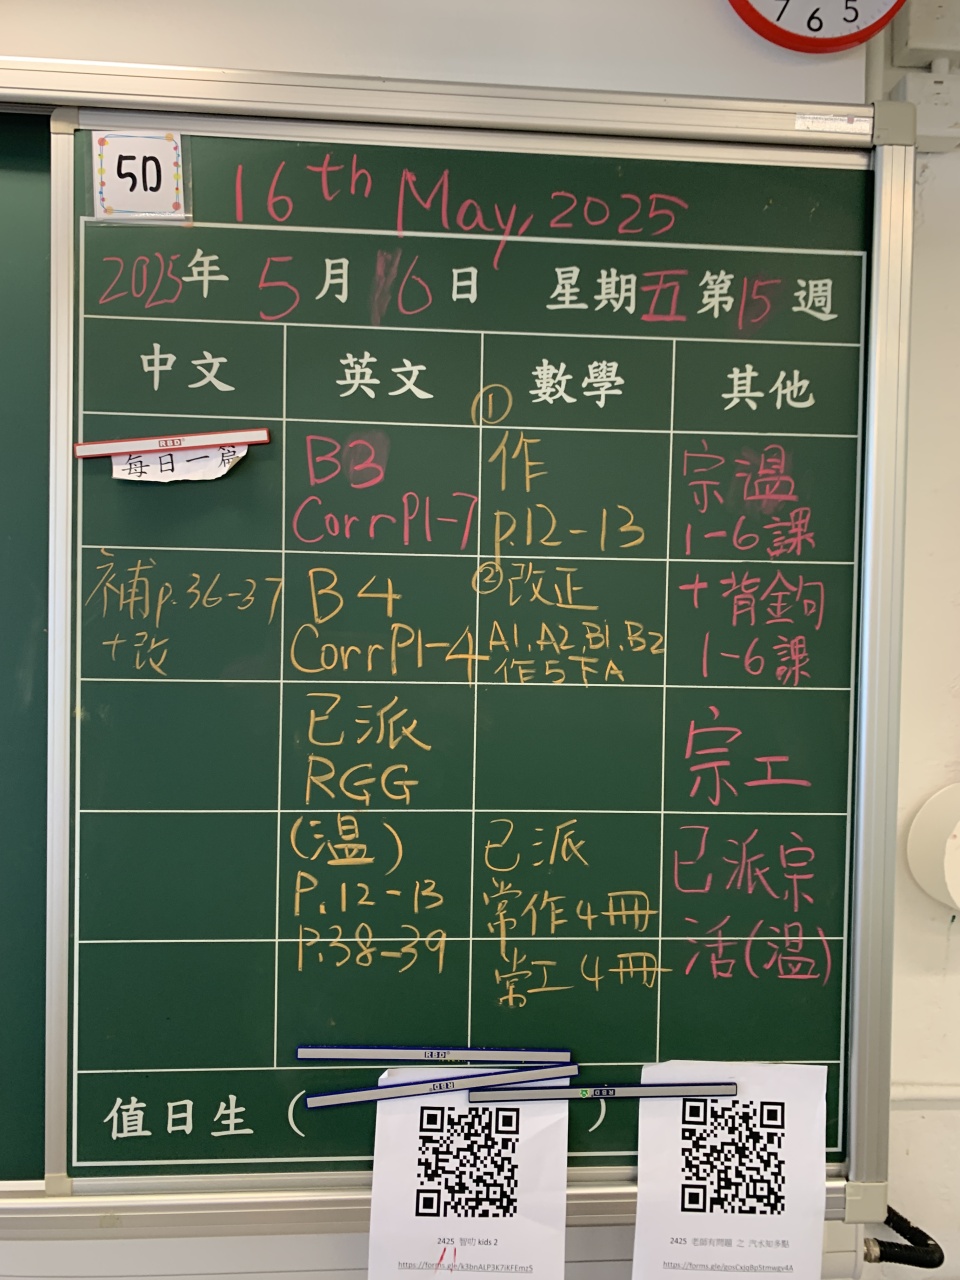 7 6 5
5D
16th May, 2025
2025年 5月 16日 星期五 第15週
中文 英文 數學 其他
RBD
每日一篇
補p.36-37
+改
B3
Corr P1-7
B4
Corr P1-4
已派
RGG
(溫)
P.12-13
P.38-39
①
作
p.12-13
②改正
A1, A2, B1, B2
作5下A
已派
常作4冊
常工4冊
宗溫
1-6課
+背金句
1-6課
宗工
已派宗
活(溫)
RBD
RBD
RBD
值日生 ( )
2425 智叻 kids 2
2425 老師有問題 之 汽水知多點